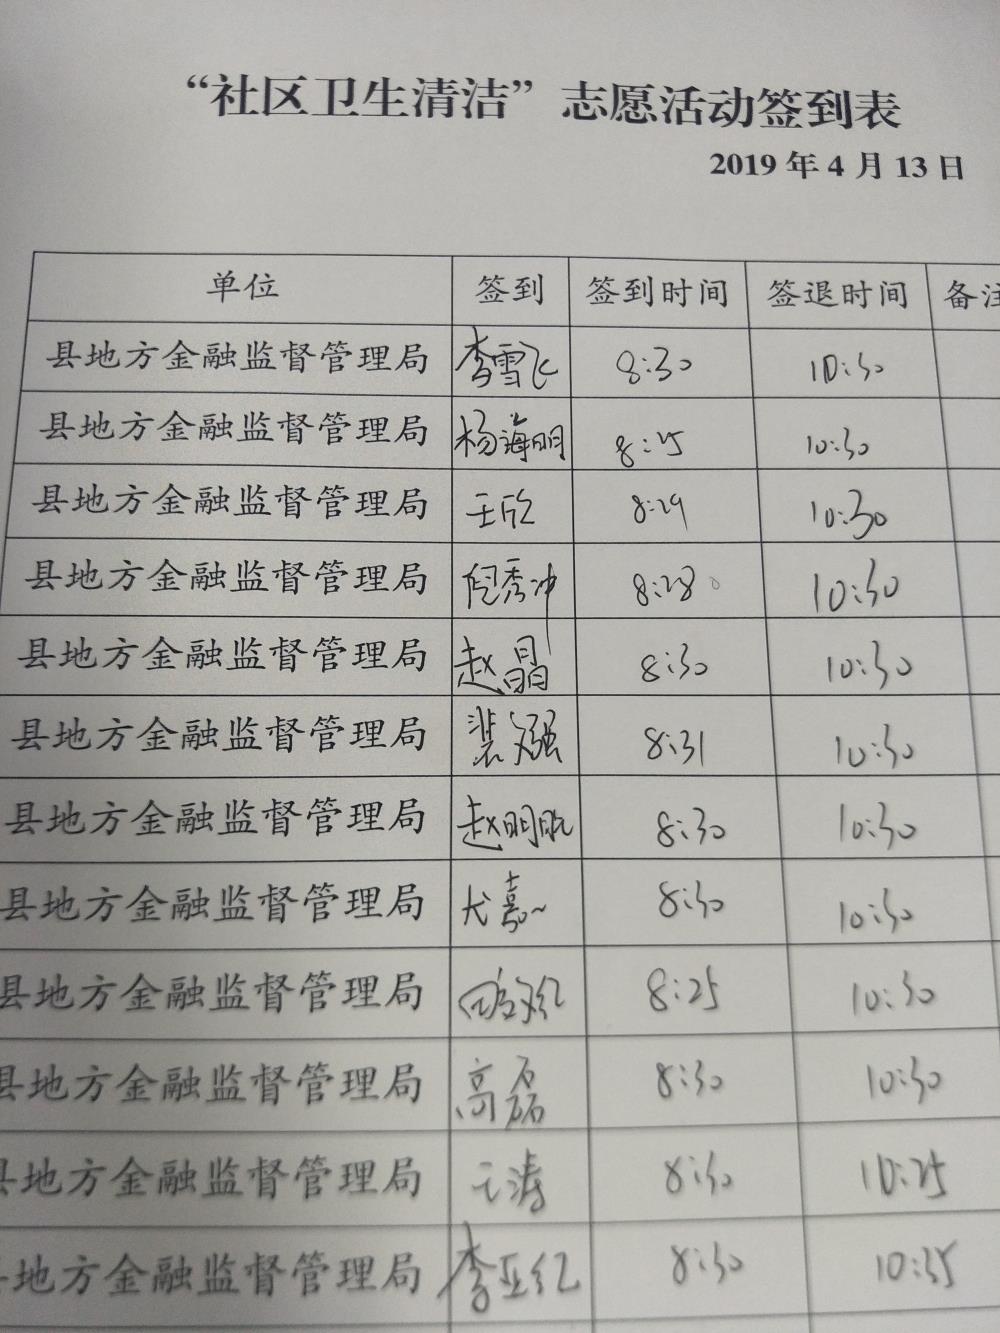 “社区卫生清洁”志愿活动签到表
2019 年 4 月 13 日
单位 签到 签到时间 签退时间 备注
县地方金融监督管理局 李雪飞 8:30 10:30
县地方金融监督管理局 杨海明 8:25 10:30
县地方金融监督管理局 王欣 8:29 10:30
县地方金融监督管理局 倪秀冲 8:28 10:30
县地方金融监督管理局 赵晶 8:30 10:30
县地方金融监督管理局 裴文强 8:31 10:30
县地方金融监督管理局 赵明 8:30 10:30
县地方金融监督管理局 尤嘉 8:30 10:30
县地方金融监督管理局 8:25 10:30
县地方金融监督管理局 高磊 8:30 10:30
县地方金融监督管理局 王涛 8:30 10:25
地方金融监督管理局 李亚红 8:30 10:35